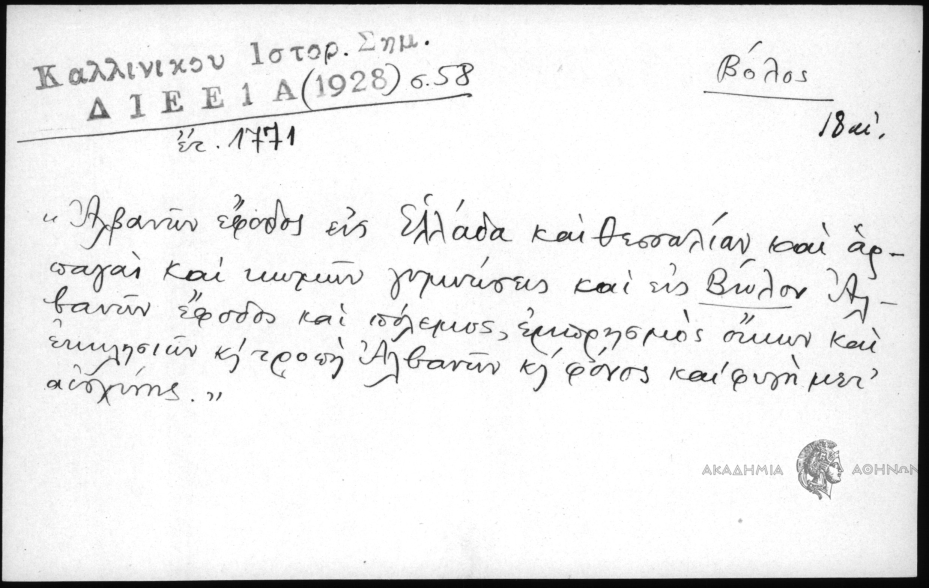 Καλλινικου Ιστορ. Σημ.
ΔΙΕΕ 1 Α (1928) σ.58
Βόλος
ἔτ. 1771
18 αἰ.
"Ἀλβανῶν ἔφοδος εἰς Ἑλλάδα καὶ Θεσσαλίαν καὶ ἁρ-
παγαὶ καὶ κωμῶν γυμνώσεις καὶ εἰς Βῶλον Ἀλ-
βανῶν ἔφοδος καὶ πόλεμος, ἐμπρησμὸς οἴκων καὶ
ἐκκλησιῶν κὴ τροπὴ Ἀλβανῶν κὴ φόνος καὶ φυγὴ μετ'
αἰσχύνης."
ΑΚΑΔΗΜΙΑ ΑΘΗΝΩΝ